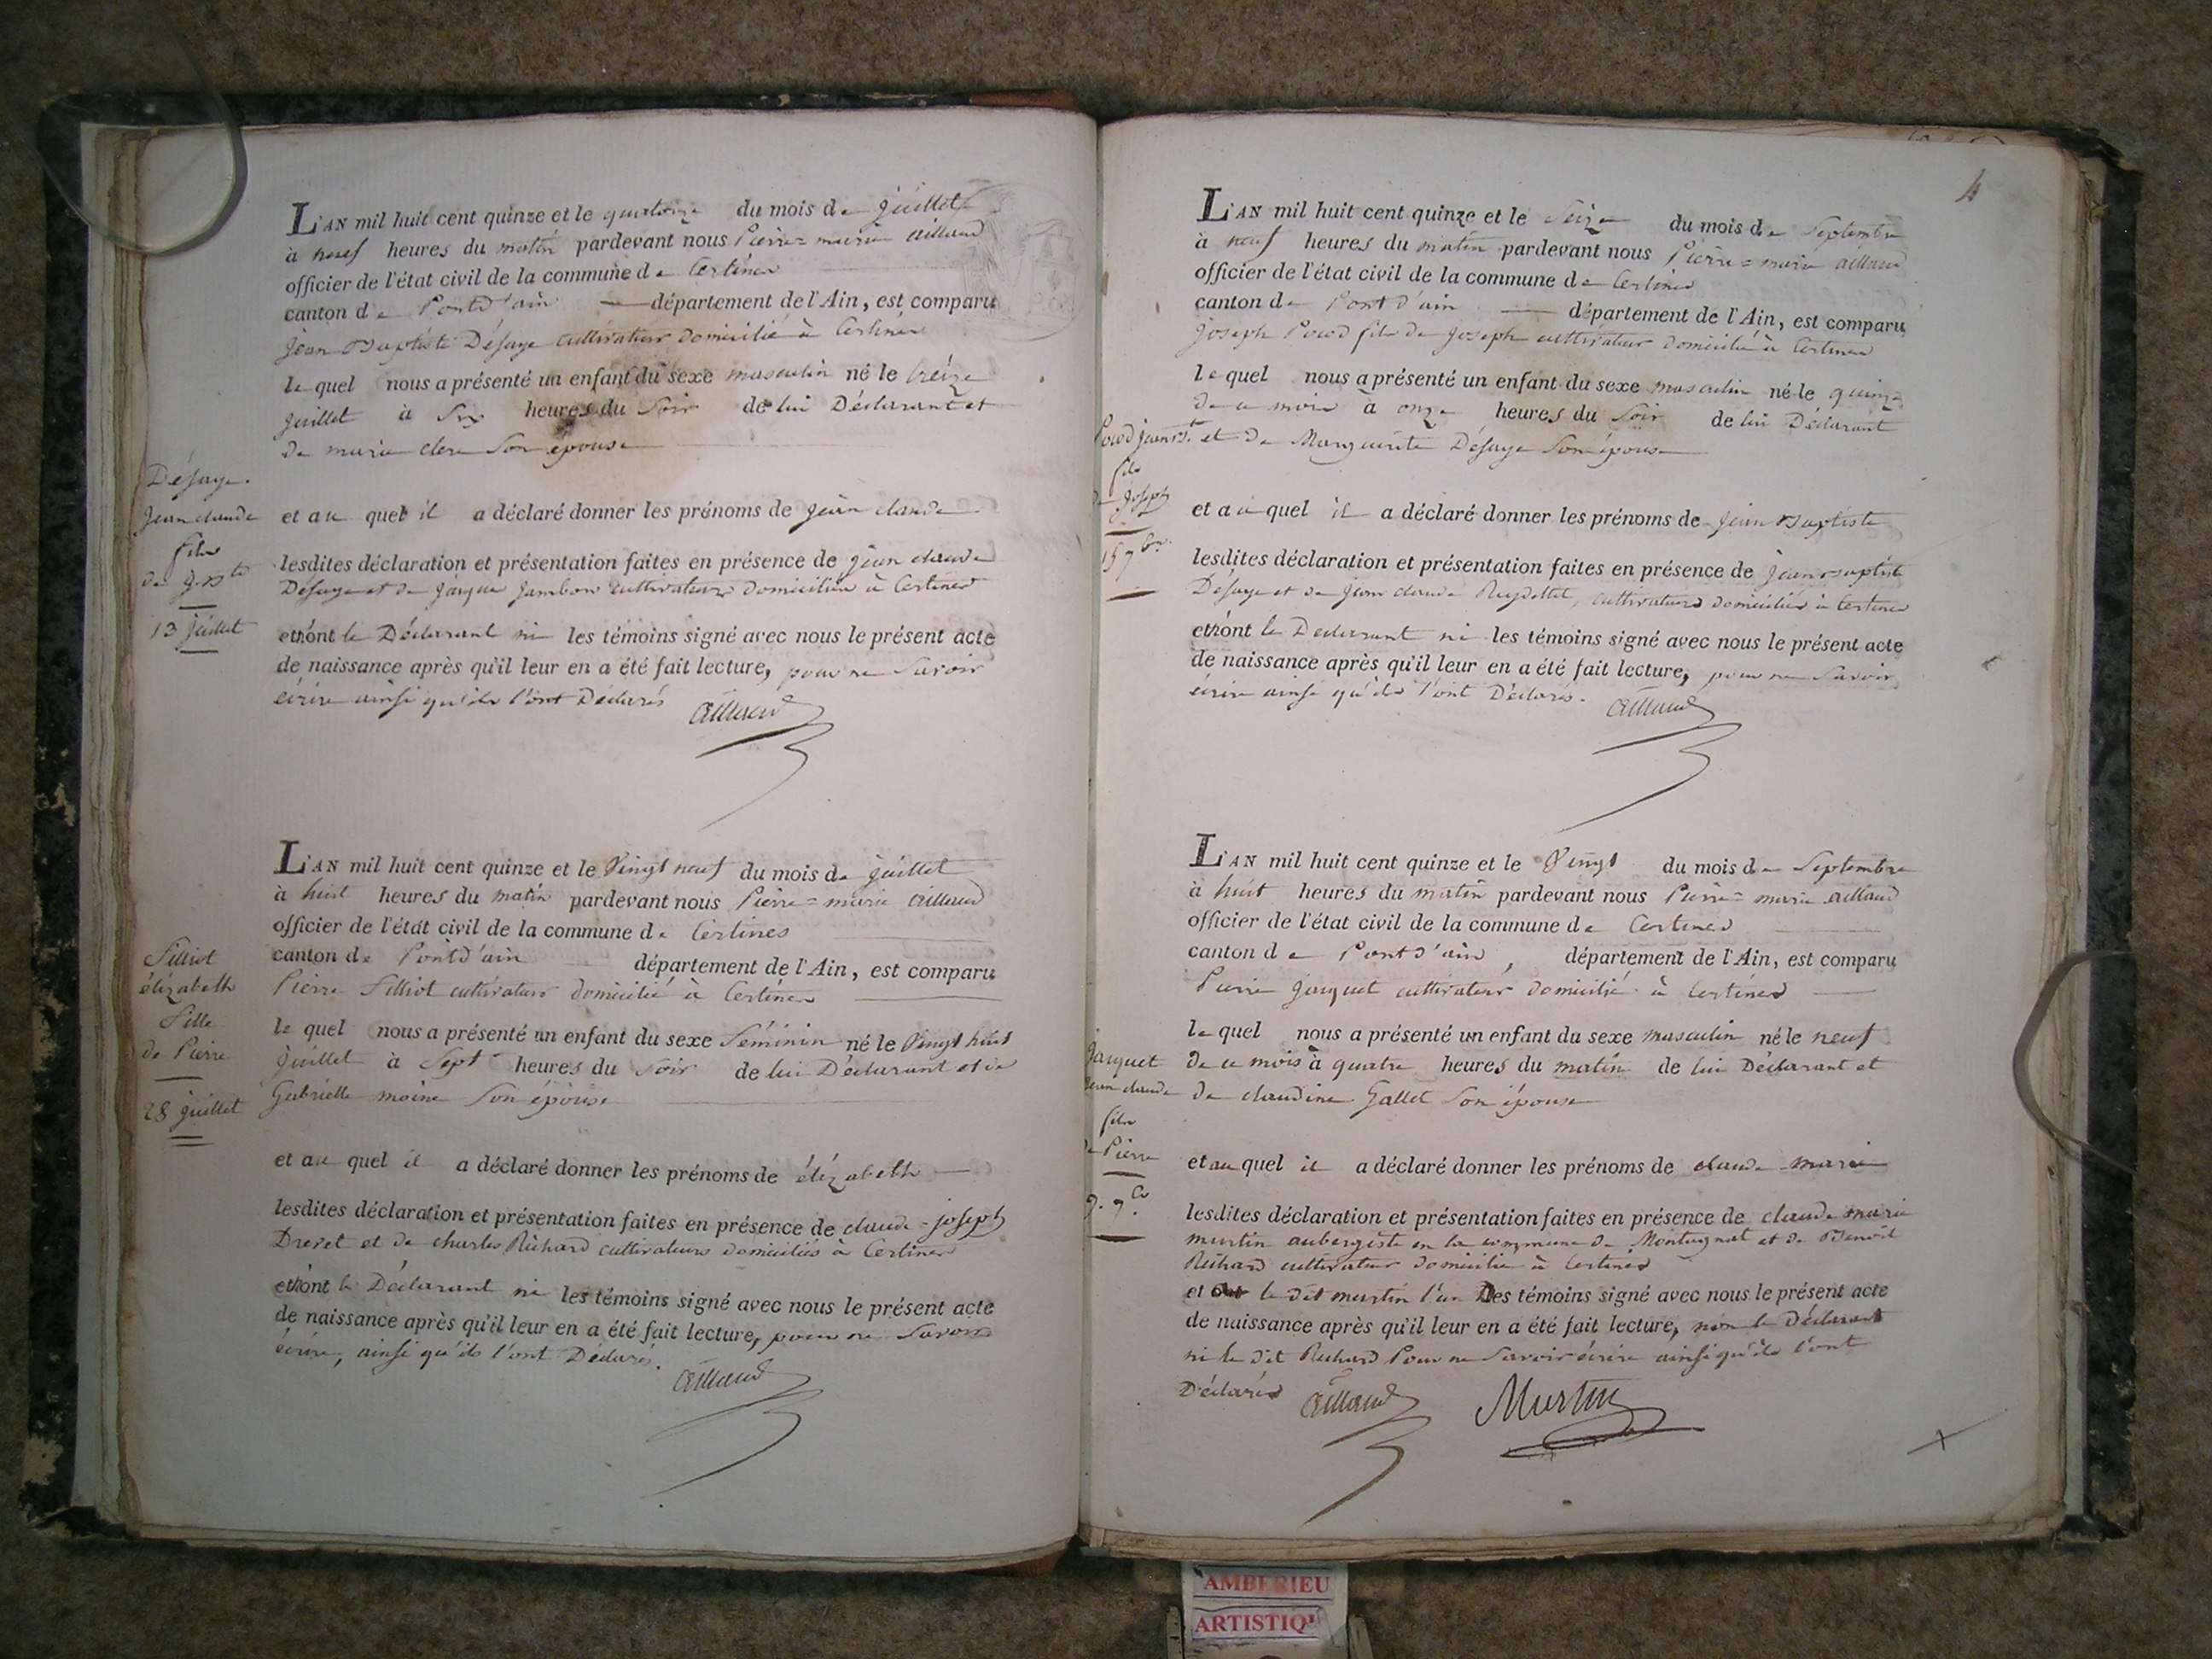 L'AN mil huit cent quinze et le quatorze du mois de juillet
à neuf heures du matin pardevant nous Pierre=marie aillaud
officier de l'état civil de la commune de Certines
canton de Pont d'ain département de l'Ain, est comparu
jean Baptiste Défaye cultivateur domicilié à Certines
le quel nous a présenté un enfant du sexe masculin né le treize
juillet à Six heures du Soir de lui Déclarant et
de marie clere Son épouse
et au quel il a déclaré donner les prénoms de jean claude
lesdites déclaration et présentation faites en présence de jean claude
Défaye et de jaque jambon cultivateurs domiciliés à Certines
et n'ont le Déclarant ni les témoins signé avec nous le présent acte
de naissance après qu'il leur en a été fait lecture, pour ne Savoir
écrire ainsi qu'ils l'ont Déclarés
aillaud
Défaye.
jean claude
fils
de j. Bte
13 juillet
L'AN mil huit cent quinze et le Vingt neuf du mois de juillet
à huit heures du matin pardevant nous Pierre=marie aillaud
officier de l'état civil de la commune de Certines
canton de Pont d'ain département de l'Ain, est comparu
Pierre filliot cultivateur domicilié à Certines
le quel nous a présenté un enfant du sexe féminin né le Vingt huit
juillet à Sept heures du Soir de lui Déclarant et de
Gabrielle moine Son épouse
et au quel il a déclaré donner les prénoms de élizabeth
lesdites déclaration et présentation faites en présence de claude=joseph
Drevet et de charles Richard cultivateurs domiciliés à Certines
et n'ont le Déclarant ni les témoins signé avec nous le présent acte
de naissance après qu'il leur en a été fait lecture, pour ne Savoir
écrire, ainsi qu'ils l'ont Déclarés.
aillaud
filliot
élizabeth
fille
de Pierre
28 juillet
4
L'AN mil huit cent quinze et le Seize du mois de Septembre
à neuf heures du matin pardevant nous Pierre=marie aillaud
officier de l'état civil de la commune de Certines
canton de Pont d'ain département de l'Ain, est comparu
joseph Powd fils de joseph cultivateur domicilié à Certines
le quel nous a présenté un enfant du sexe masculin né le quinze
de ce mois à onze heures du Soir de lui Déclarant
et de Marguerite Défaye Son épouse
et au quel il a déclaré donner les prénoms de jean Baptiste
lesdites déclaration et présentation faites en présence de jean Baptiste
Défaye et de jean claude Ruydellet, cultivateurs domiciliés à Certines
et n'ont le Déclarant ni les témoins signé avec nous le présent acte
de naissance après qu'il leur en a été fait lecture, pour ne Savoir
écrire ainsi qu'ils l'ont Déclarés.
aillaud
Powd jean Bt.
fils
de joseph
15 7bre.
L'AN mil huit cent quinze et le Vingt du mois de Septembre
à huit heures du matin pardevant nous Pierre=marie aillaud
officier de l'état civil de la commune de Certines
canton de Pont d'ain, département de l'Ain, est comparu
Pierre jaquet cultivateur domicilié à Certines
le quel nous a présenté un enfant du sexe masculin né le neuf
de ce mois à quatre heures du matin de lui Déclarant et
de claudine Gallet Son épouse
et au quel il a déclaré donner les prénoms de claude marie
lesdites déclaration et présentation faites en présence de claude marie
martin aubergiste en la commune de Montagnat et de Benoit
Richard cultivateur domicilié à Certines
et le dit martin l'un Des témoins signé avec nous le présent acte
de naissance après qu'il leur en a été fait lecture, non le Déclarant
ni le dit Richard Pour ne Savoir écrire ainsi qu'ils l'ont
Déclarés
aillaud Martin
jaquet
jean claude
fils
de Pierre
9. 7e.
AMBERIEU
ARTISTIQU